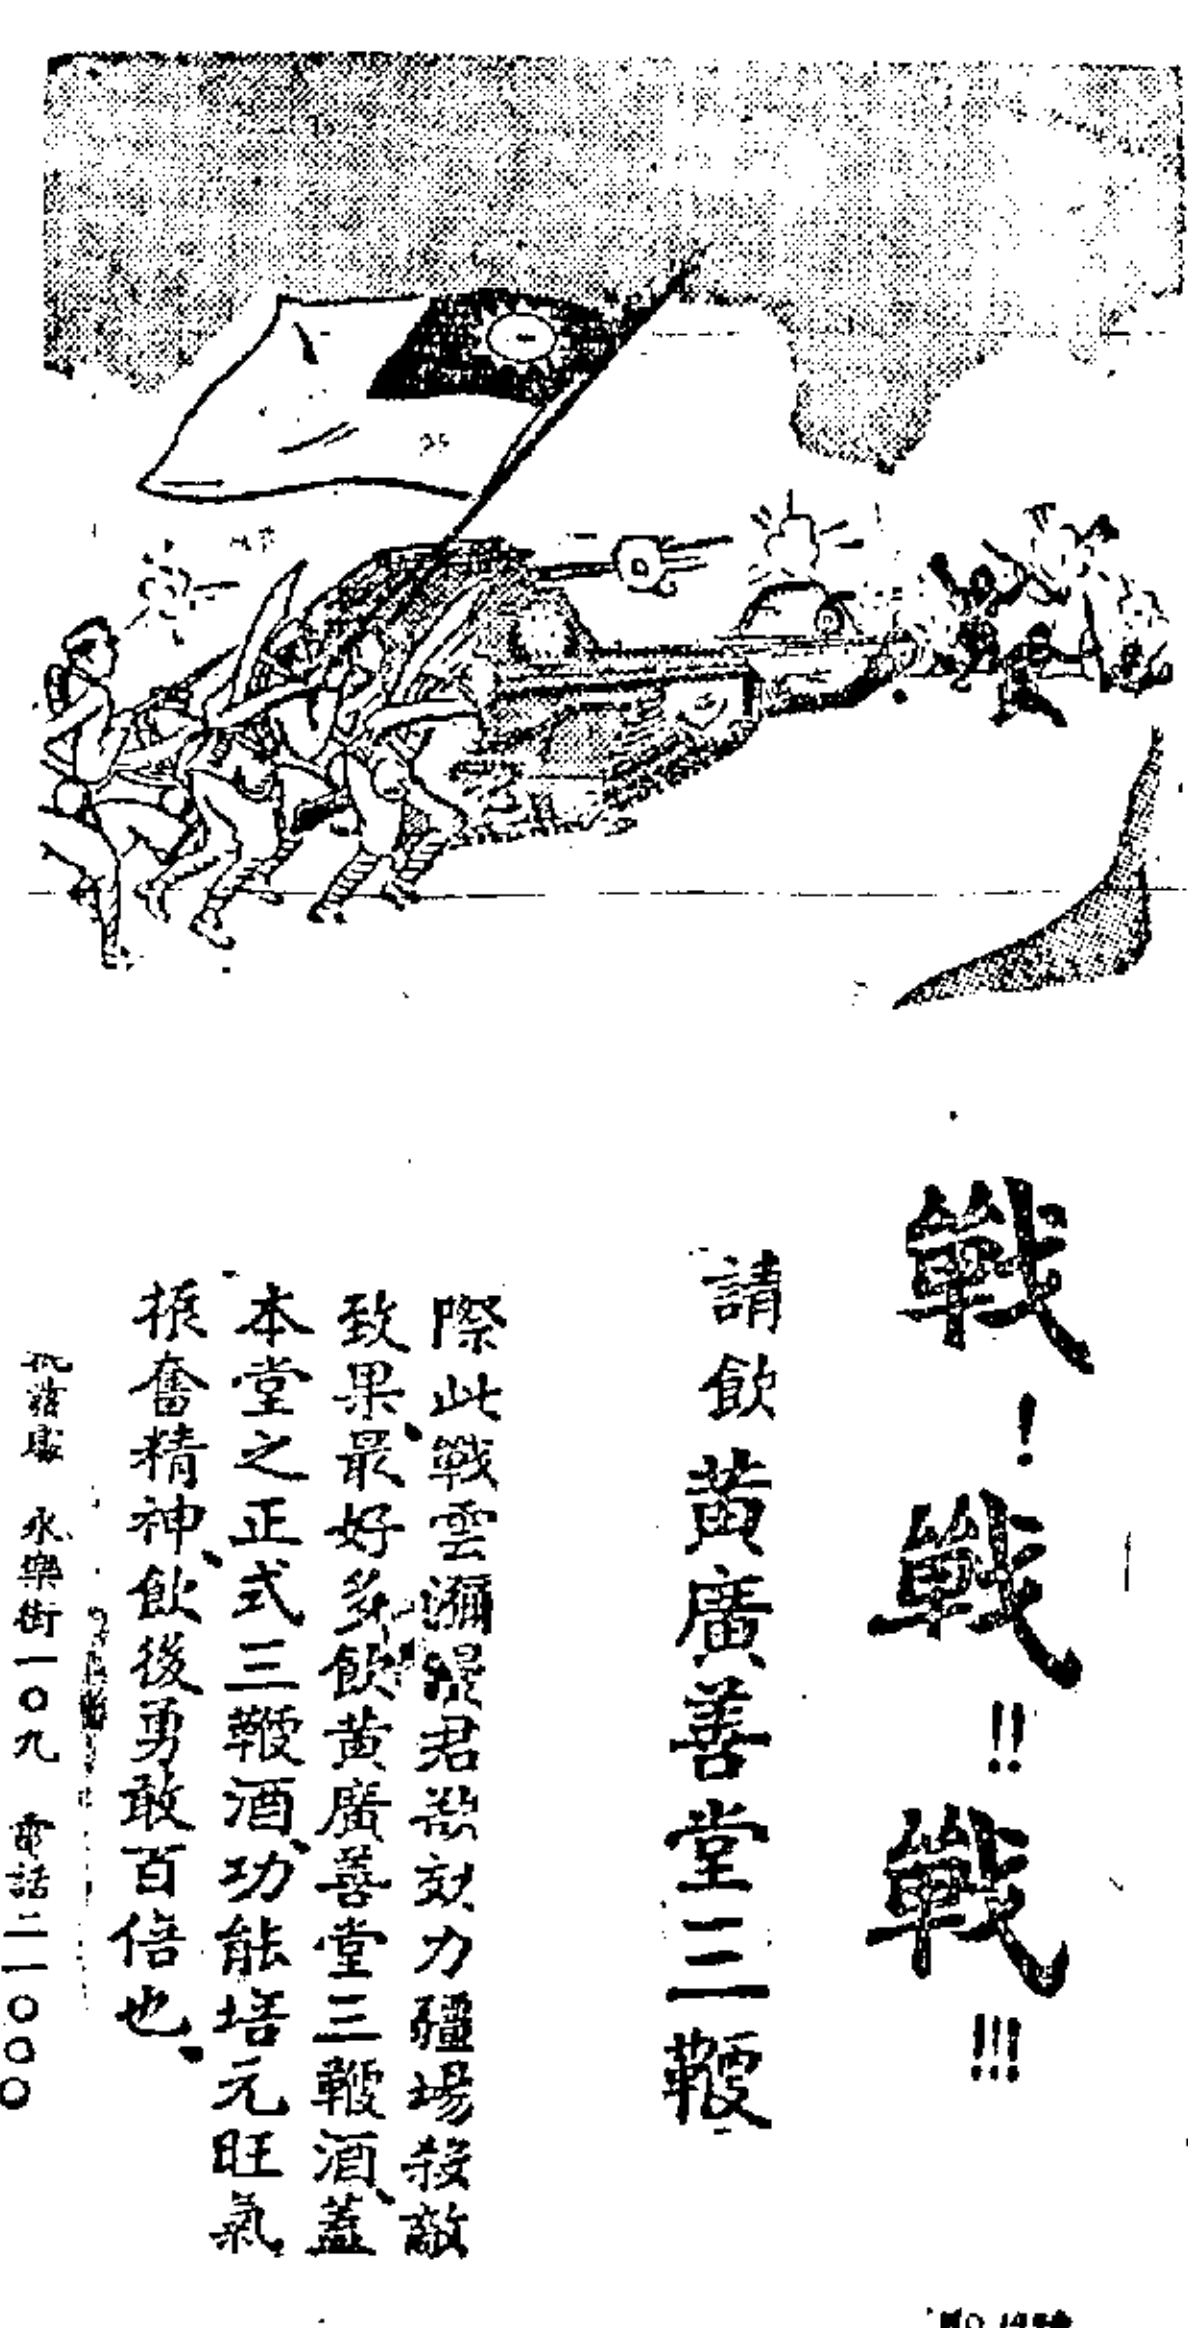 戰！戰！！戰！！！
請飲黃廣善堂三鞭
際此戰雲瀰漫君欲效力疆場殺敵
致果、最好多飲黃廣善堂三鞭酒、蓋
本堂之正式三鞭酒、功能培元旺氣
振奮精神、飲後勇敢百倍也、
永樂街一〇九 電話二一〇〇〇